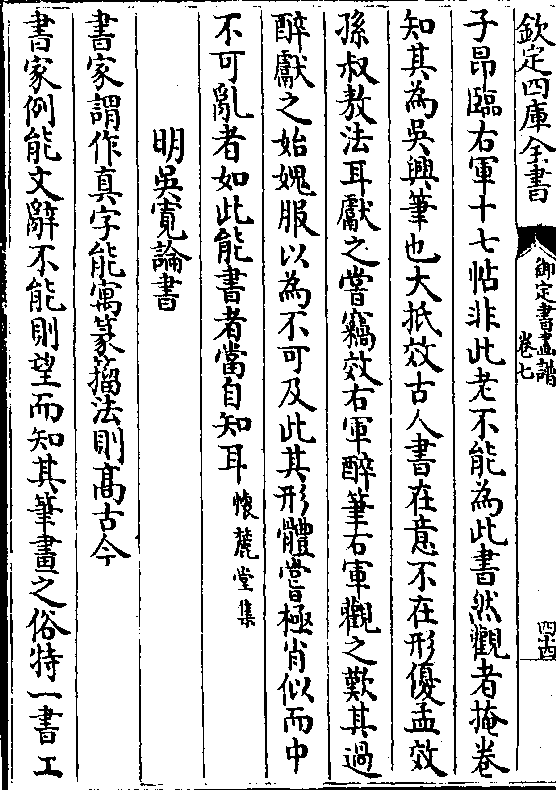 欽定四庫全書
御定書畫譜
卷七
四十四
子昂臨右軍十七帖非此老不能為此書然觀者掩卷
知其為吳興筆也大抵效古人書在意不在形優孟效
孫叔敖法耳獻之嘗竊效右軍醉筆右軍觀之歎其過
醉獻之始媿服以為不可及此其形體當極肖似而中
不可亂者如此能書者當自知耳 懷麓堂集
明吳寛論書
書家謂作真字能寓篆籀法則髙古今
書家例能文辭不能則望而知其筆畫之俗特一書工